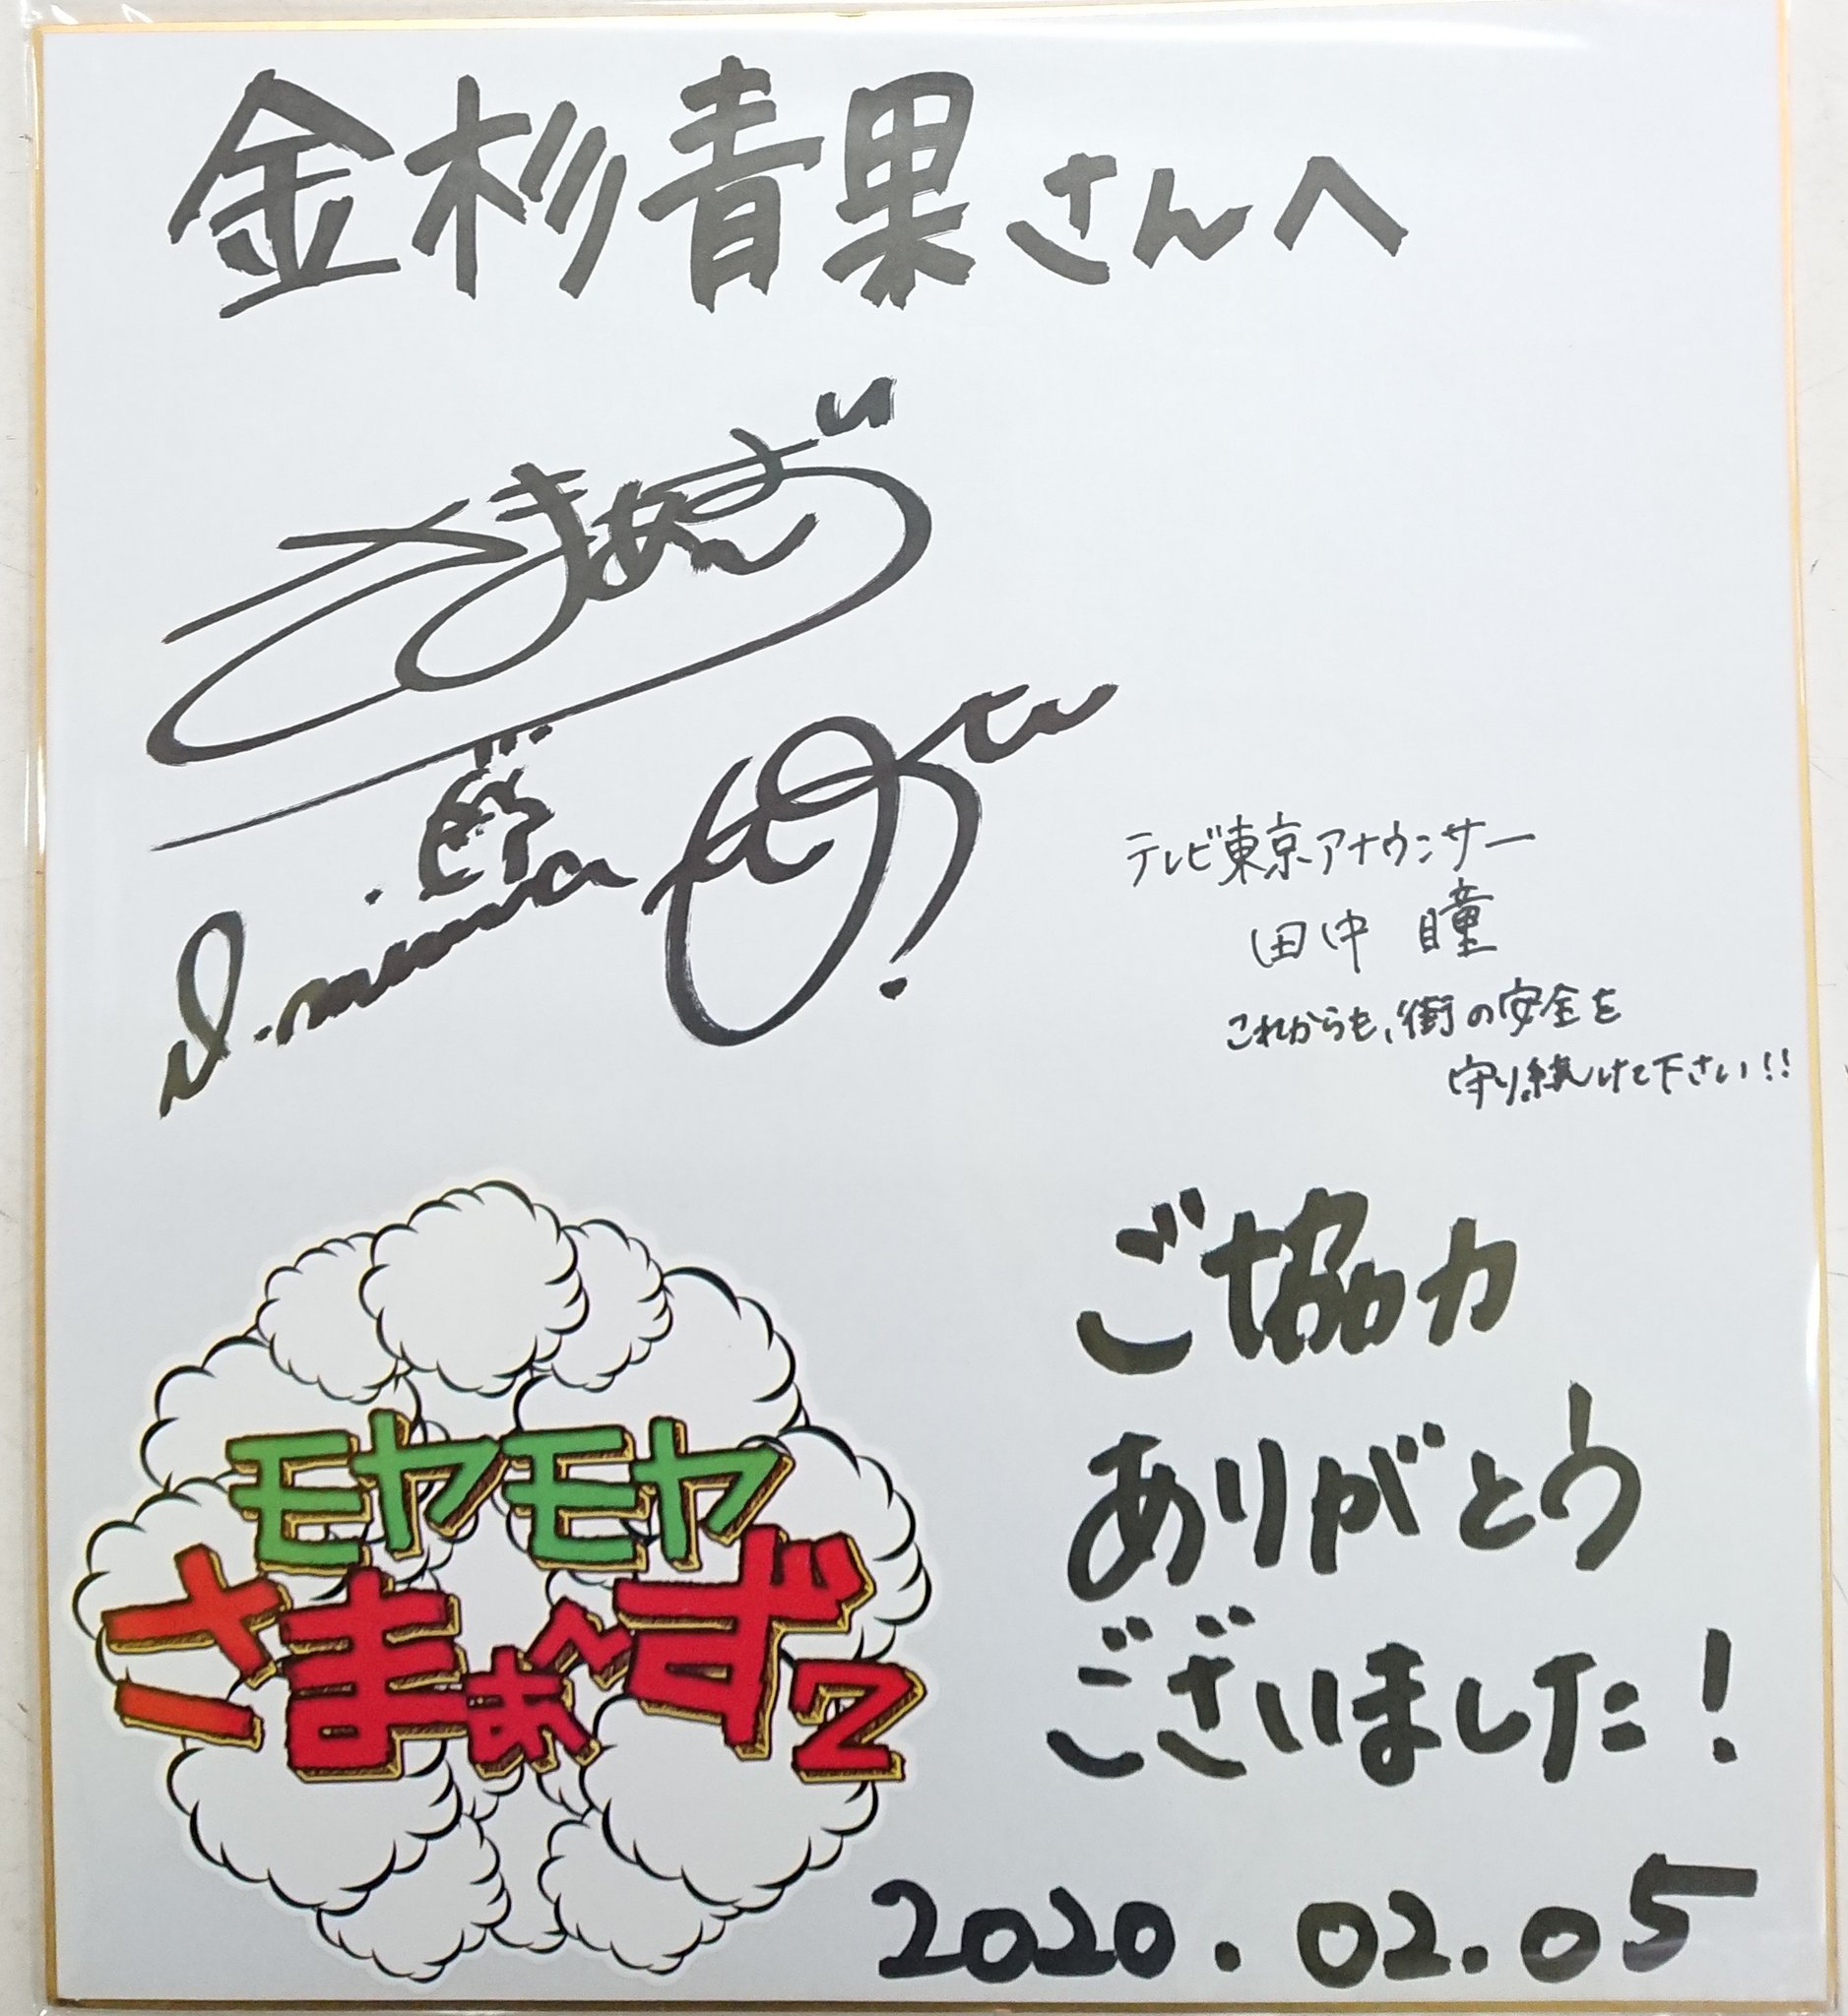 金杉青果さんへ
さまぁ〜ず
テレビ東京アナウンサー
田中 瞳
これからも、街の安全を
守り続けて下さい!!
モヤモヤ
さまぁ〜ず2
ご協力
ありがとう
ございました!
2020.02.05